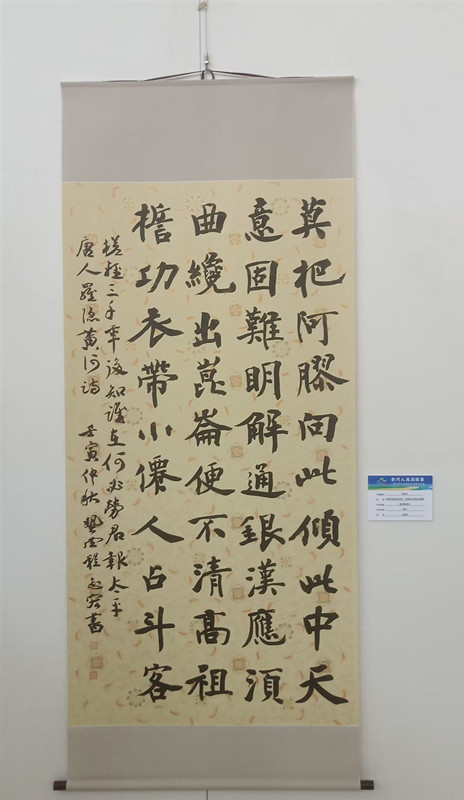 莫把阿膠向此傾此中天
意固難明解通銀漢應須
曲纔出崑崙便不清高祖
檐功衣帶小僊人占斗客
槎輕三千年後知誰在何必勞君報太平
唐人羅隱黃河詩 壬寅仲秋 程 書